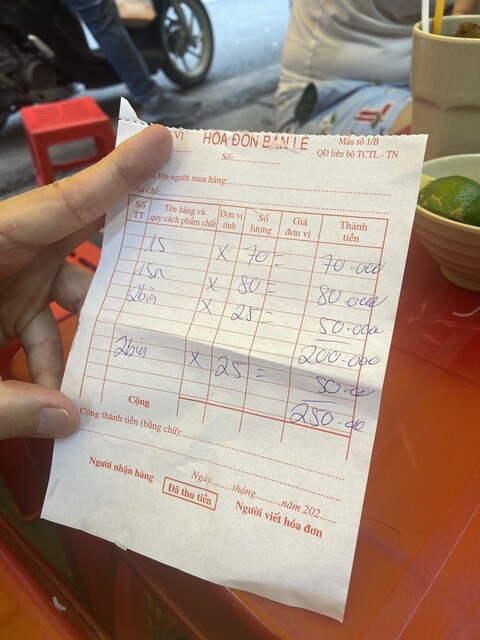 VỊ HÓA ĐƠN BÁN LẺ Mẫu số 1/B
Số:
QĐ liên bộ TCTL - TN
tên người mua hàng:
địa chỉ:
Số TT Tên hàng và quy cách phẩm chất Đơn vị tính Số lượng Giá đơn vị Thành tiền
1S x 70 = 70.000
1Sn x 80 = 80.000
2bia x 25 = 50.000
200.000
2bia x 25 = 50.00
250.00
Cộng
Cộng thành tiền (bằng chữ):
Ngày tháng năm 202
Người nhận hàng Đã thu tiền Người viết hóa đơn